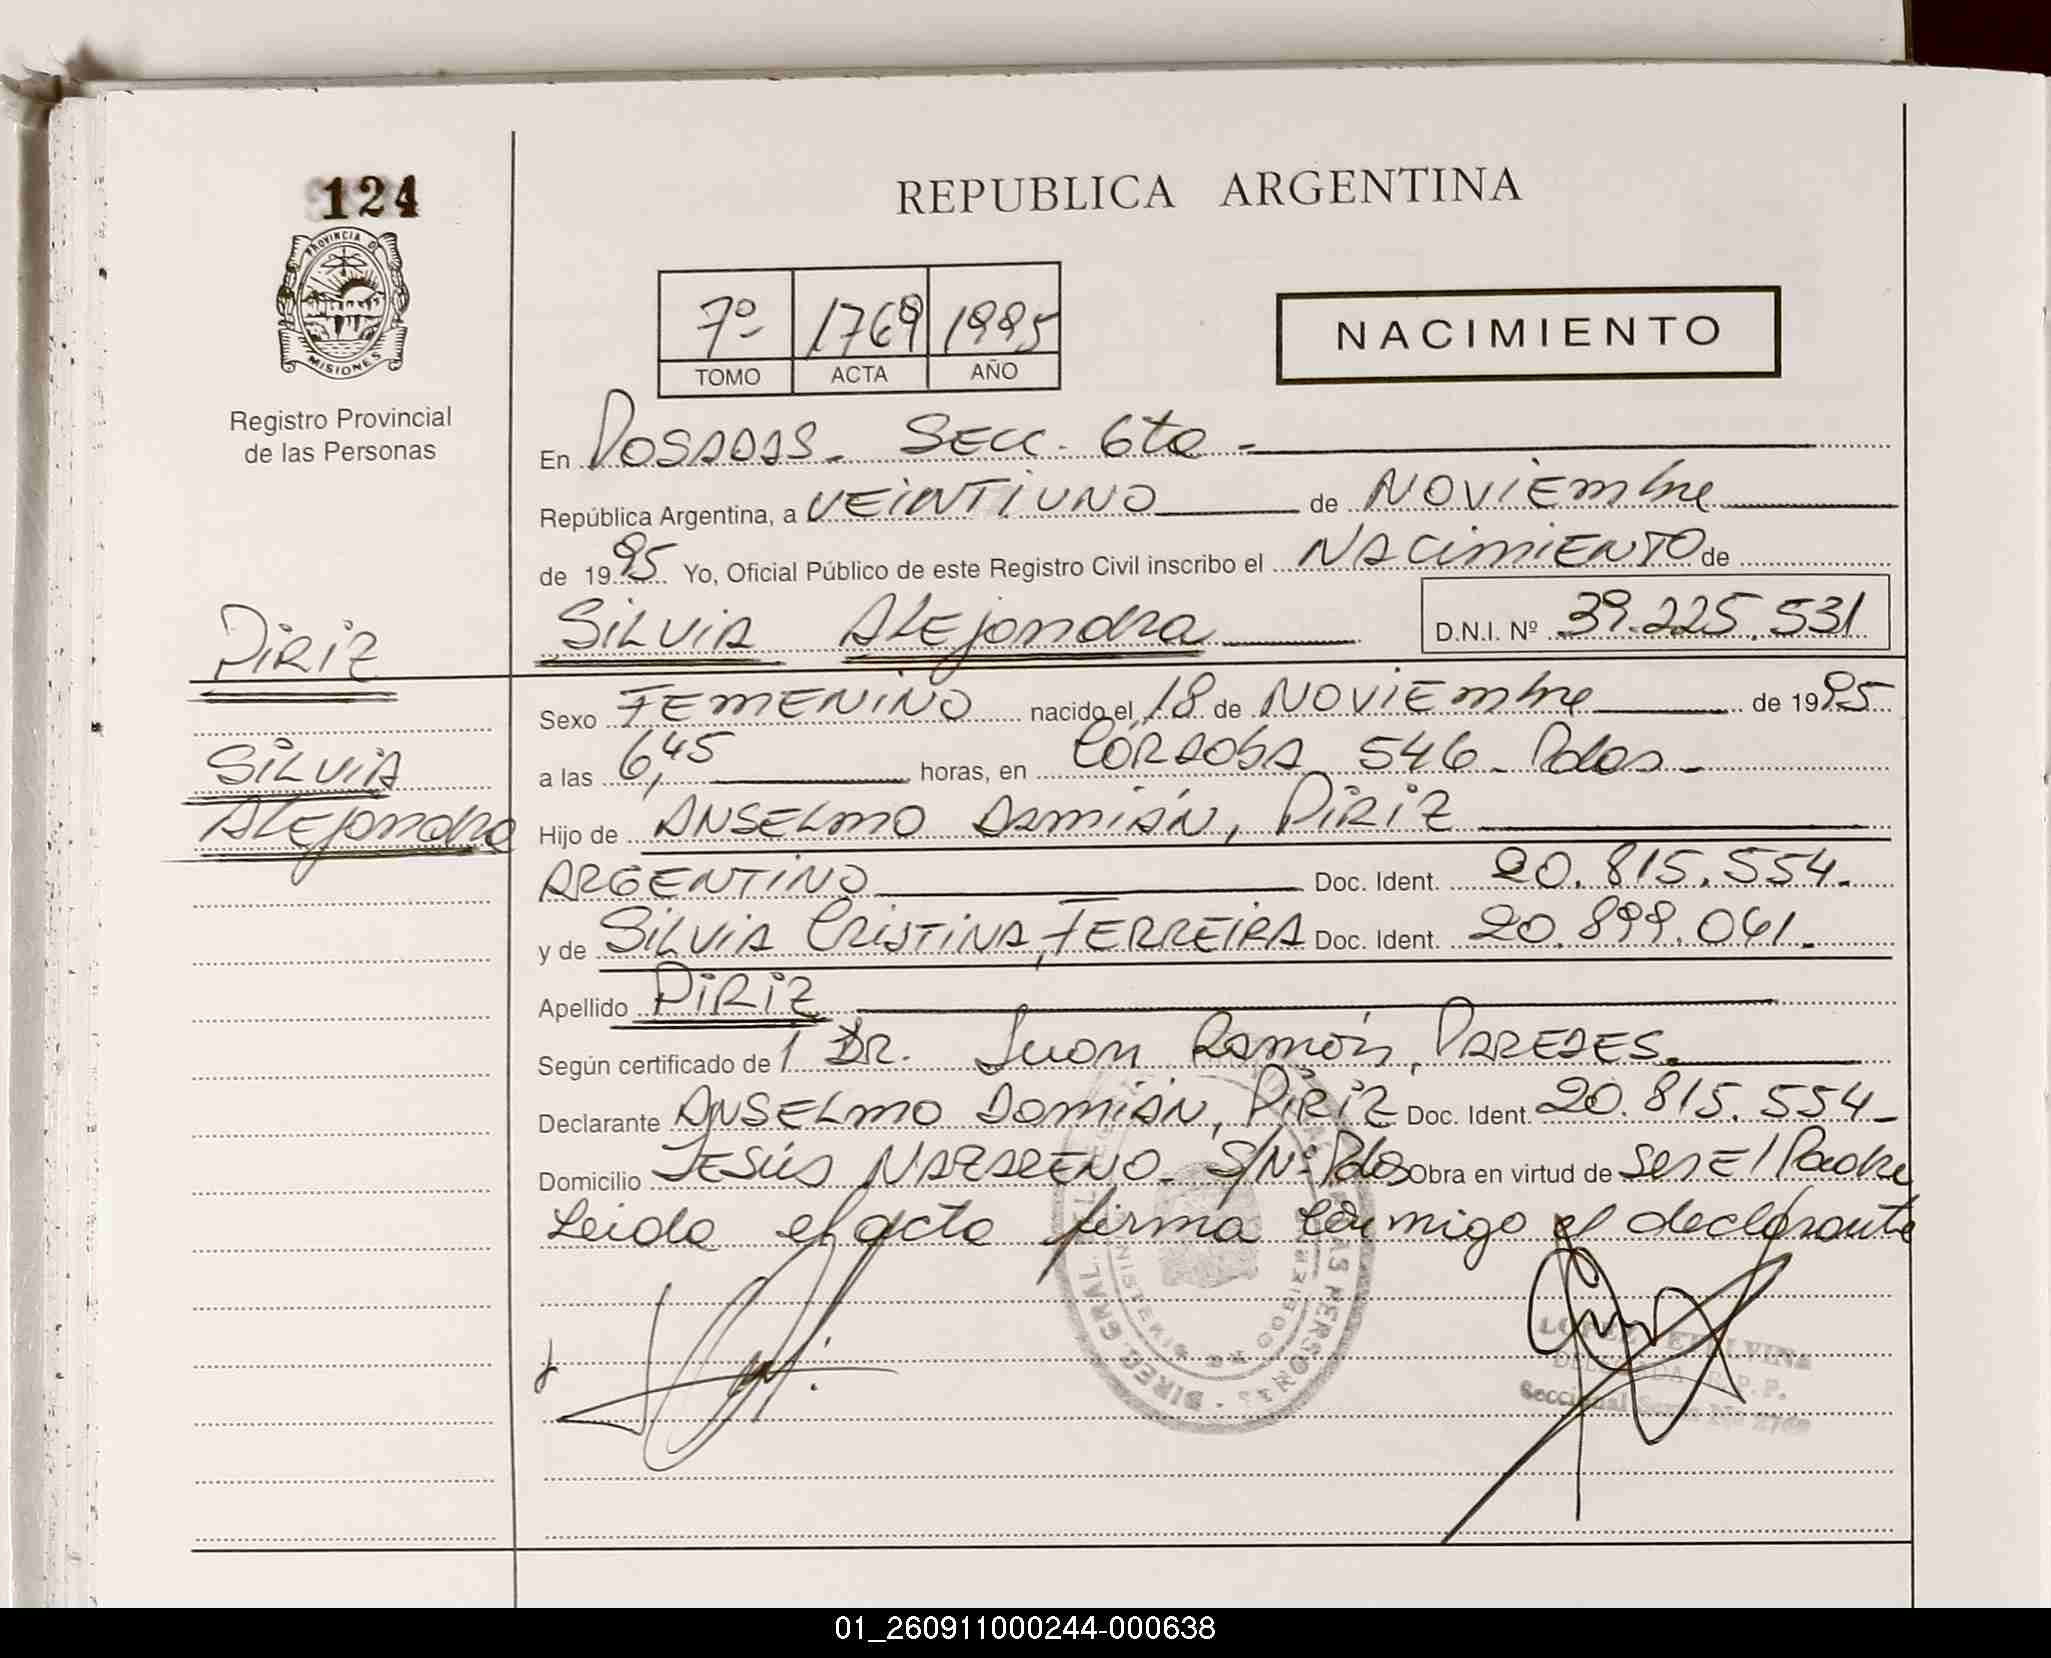 124
PROVINCIA D
MISIONES
Registro Provincial
de las Personas
REPUBLICA ARGENTINA
7º 1769 1995
TOMO ACTA AÑO
NACIMIENTO
En POSADAS. SECC. 6ta.
República Argentina, a VEINTIUNO de NOVIEmbre
de 1995 Yo, Oficial Público de este Registro Civil inscribo el NACimiENTO de
SiLViA ALEjandra D.N.I. Nº 39.225.531
PiRiZ
SiLViA
ALEjandra
Sexo FEmENiNO nacido el 18 de NOVIEmbre de 1995
a las 6,45 horas, en CÓRDObA 546 - Pdas -
Hijo de ANSELmO DAmiÁN, PiRiZ
ARGENTiNO Doc. Ident. 20.815.554.
y de SiLViA CRiSTiNA, FERREiRA Doc. Ident. 20.899.061.
Apellido PiRiZ
Según certificado de 1 DR. Juan Ramón, PAREDES.
Declarante ANSELmO DamiÁN, PiRiZ Doc. Ident. 20.815.554-
Domicilio JESÚS NAZARENO. S/Nº Pdas Obra en virtud de ser El Padre
Leida el acta firma conmigo el declarante
DIREC. GRAL. PERSONAS
MINISTERIO DE GOBIERNO
R.P.P.
01_260911000244-000638